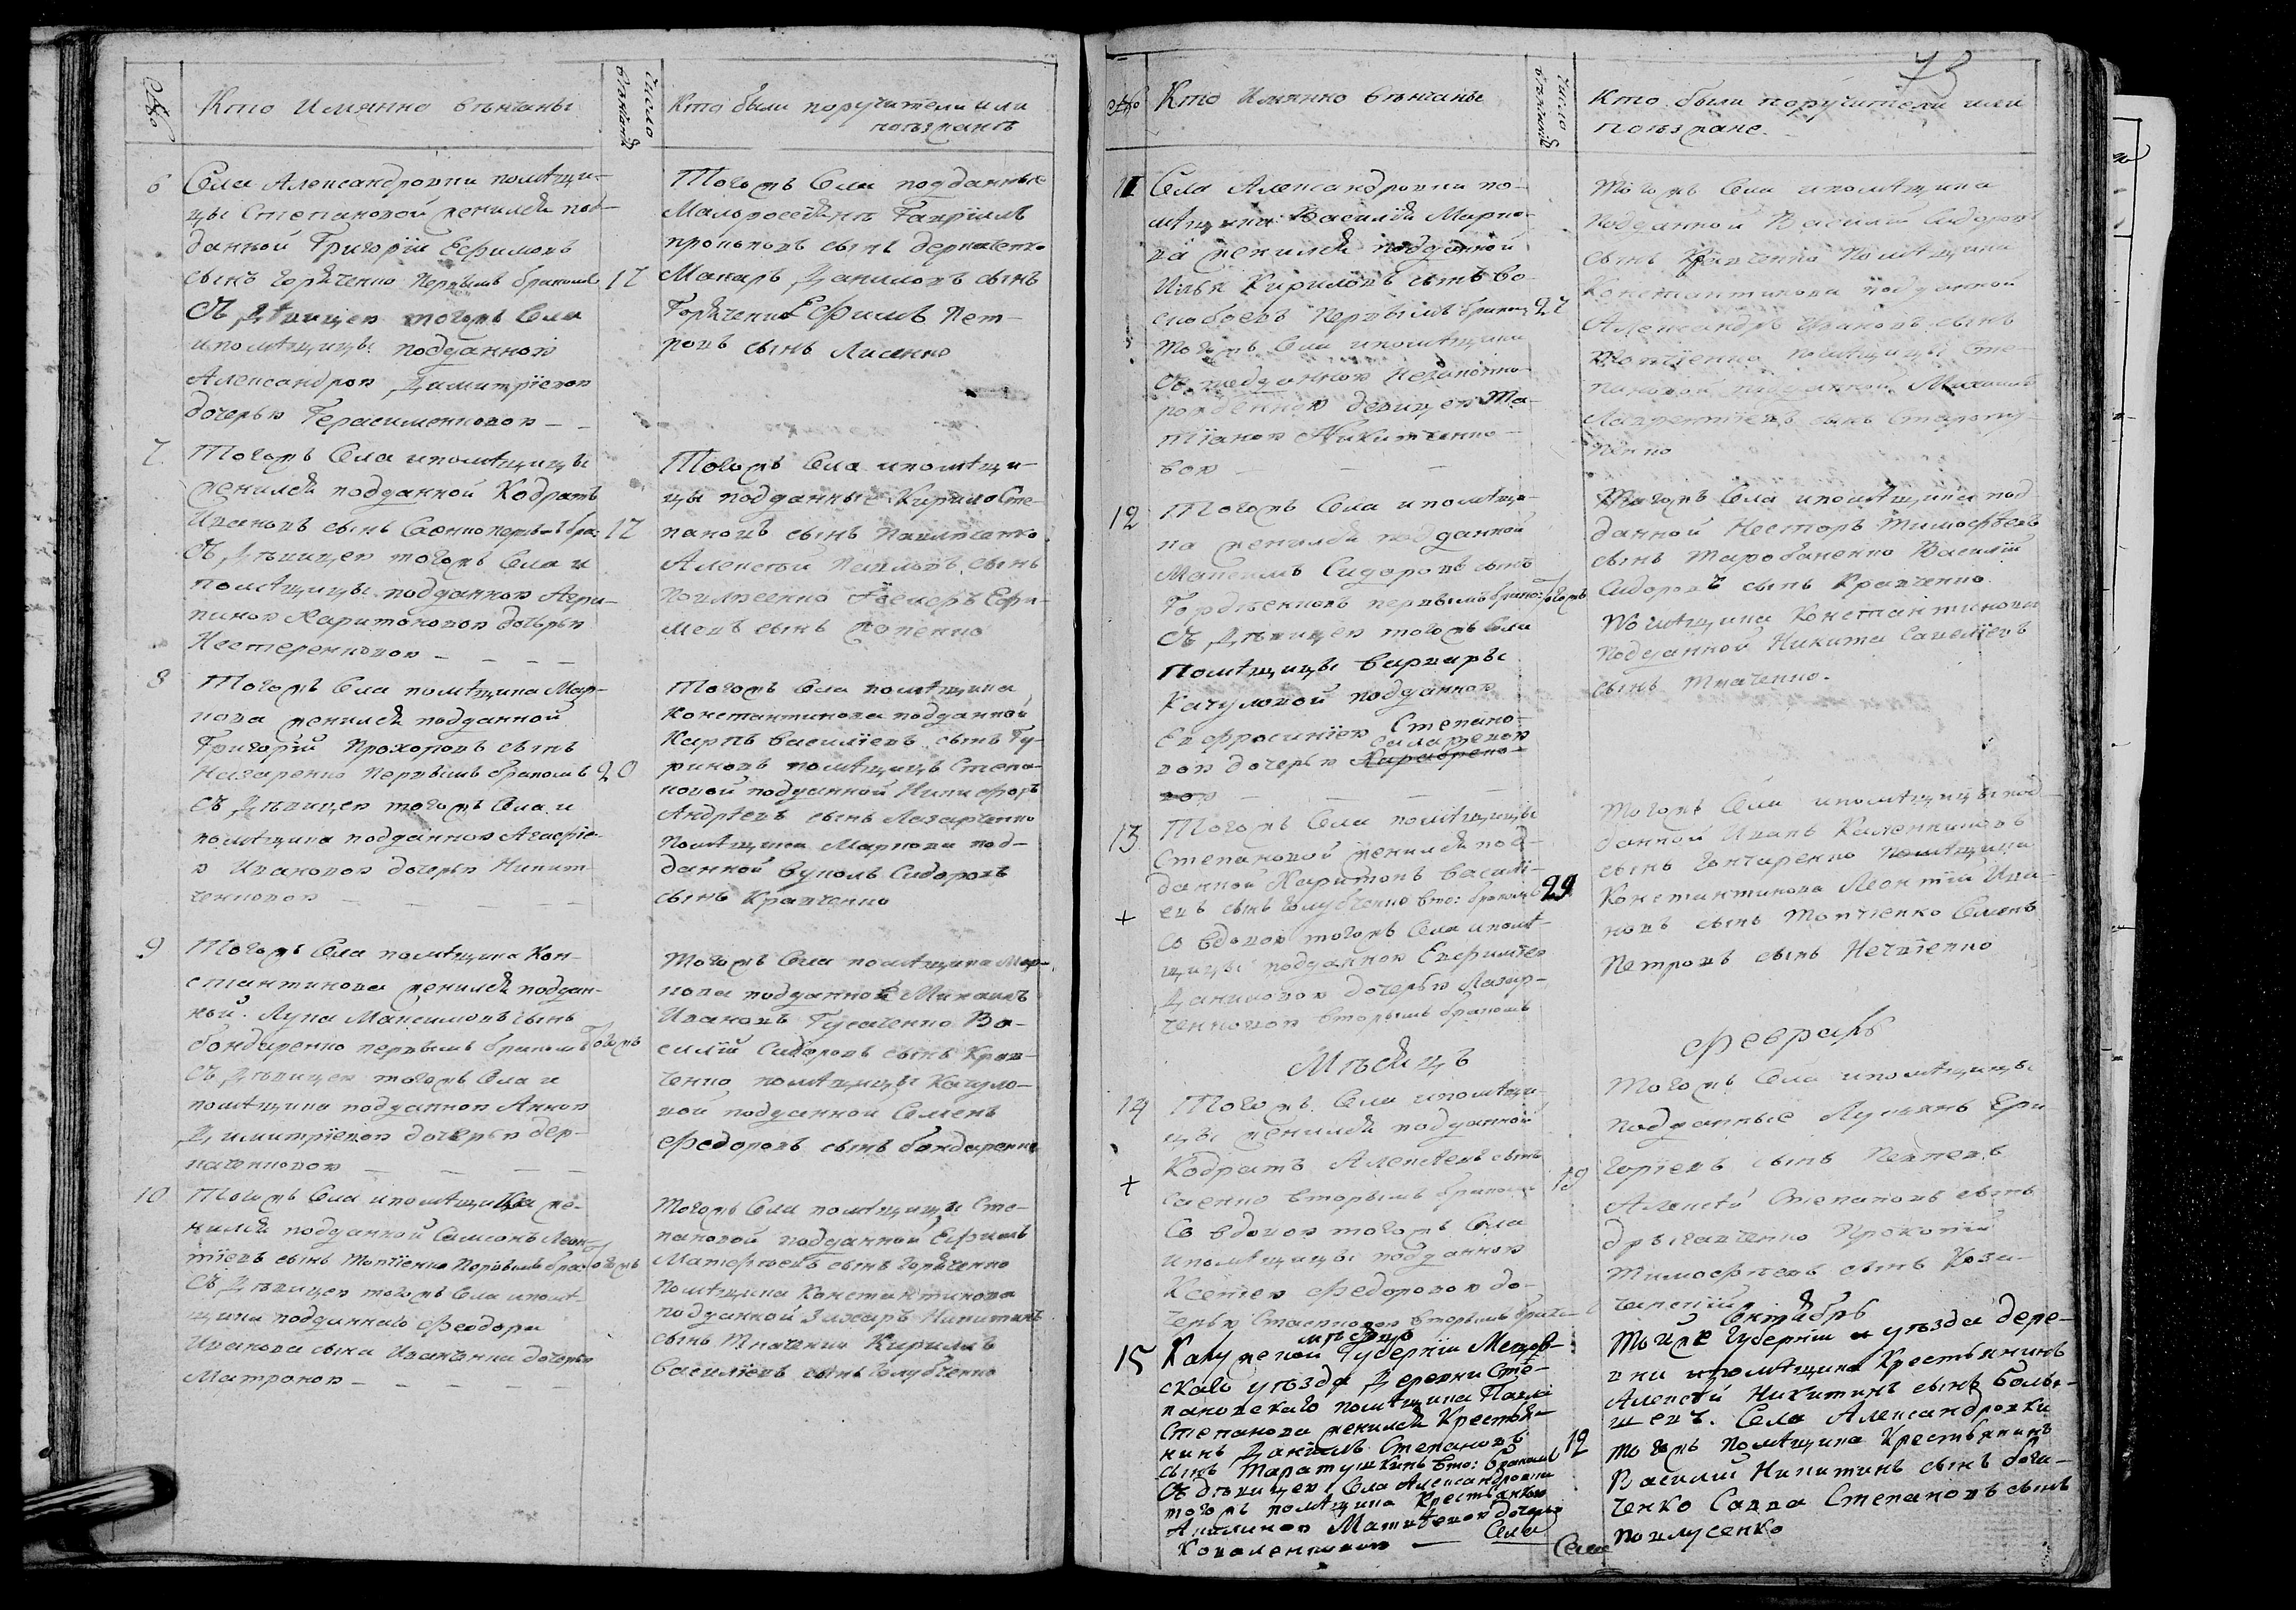 №
Кто Имянно венчаны
Число венчаній
Кто были поручители или
поезжанѣ
6
Села Александровки помѣщи-
цы Степановой женился под-
данной Григорій Ефимовъ
сынъ Горяченко первымъ бракомъ
17
Съ Дѣвицею тогожъ Села
ипомѣщицы подданною
Александрою Димитріевою
дочерью Герасименковою
Тогожъ Села подданные
Малоросеяне Гавріилъ
Прокоповъ сынъ дериаченко
Макаръ Даниловъ сынъ
Горяченко Ефимъ Пет-
ровъ сынъ Лисенко
7
Тогожъ Села ипомѣщицы
женился подданной Кодратъ
Ивановъ сынъ Саенко первымъ бра:
17
Съ Дѣвицею тогожъ Села и
помѣщицы подданною Агри-
пиною Харитоновою дочерью
Нестеренковою
Тогожъ Села ипомѣщи-
цы подданные Кирило Сте-
пановъ сынъ
Алексѣй Павловъ сынъ
Ефи-
мовъ сынъ
8
Тогожъ Села помѣщика Мар-
кова женился подданной
Григорій Прохоровъ сынъ
Назаренко первымъ бракомъ
20
Съ Дѣвицею тогожъ Села и
помѣщика подданною Агафіе-
ю Ивановою дочерью Никит-
ченковою
Тогожъ Села помѣщика
Константинова подданной
Карпъ Василіевъ сынъ Гу-
риновъ помѣщицы Степа-
новой подданной Никифоръ
Андрѣевъ сынъ Лазарченко
Помѣщика Маркова под-
данной Вуколъ Сидоровъ
сынъ Кравченко
9
Тогожъ Села помѣщика Кон-
стантинова женился поддан-
ной Лука Максимовъ сынъ
бондаренко первымъ бракомъ
Тогожъ
Съ Дѣвицею тогожъ Села и
помѣщика подданною Анною
Димитріевою дочерью дер-
каченковою
Тогожъ Села помѣщика Мар-
кова подданной Михаилъ
Ивановъ Гусаченко Ва-
силій Сидоровъ сынъ Крав-
ченко помѣщицы Качуло-
вой подданной Семенъ
Федоровъ сынъ бондаренко
10
Тогожъ Села ипомѣщика же-
нился подданной Самсонъ Леон-
тіевъ сынъ Топчіенко Первымъ бра:
тогожъ
Съ Дѣвицею тогожъ Села ипомѣ-
щика подданнаго Феодора
Иванова сына Иванченка дочерью
Матроною
Тогожъ Села помѣщицы Сте-
пановой подданной Ефимъ
Матфѣевъ сынъ Горяченко
Помѣщика Константинова
подданной Захаръ Никитинъ
сынъ Ткаченко Кирилъ
Василіевъ сынъ Голубченко
73
№
Кто Имянно венчаны
Число венчаній
Кто были поручители или
поезжане
11
Села Александровки по-
мѣщика Василія Марко-
ва женился подданной
Илья Кириловъ сынъ Во-
скобоевъ Первымъ бракомъ
27
тогожъ Села ипомѣщика
съ подданною незаконно-
рожденною девицею Та-
тіаною Никитенко-
вою
Тогожъ Села ипомѣщика
подданной Василій Сидоровъ
сынъ Кравченко Помѣщика
Константинова подданной
Александръ Ивановъ сынъ
Топчіенко помѣщицы Сте-
пановой подданной Михаилъ
Лаврентіевъ сынъ
12
Тогожъ Села ипомѣщи-
ка женился подданной
Максимъ Сидоровъ сынъ
Гордѣенковъ первымъ бракомъ
тогожъ
Съ Дѣвицею тогожъ Села
Помѣщицы Варвары
Качуловой подданною
Евфросиніею Степано-
вою дочерью
Тогожъ Села ипомѣщика под-
данной Несторъ Тимофѣевъ
сынъ Тарабаненко Василій
Сидоровъ сынъ Кравченко
Помѣщика Константинова
подданной Никита Савеліевъ
сынъ Ткаченко.
13
Тогожъ Села помѣщицы
Степановой женился под-
данной Харитонъ Василі-
евъ сынъ Голубченко вто: бракомъ
29
+
Со вдовою тогожъ Села ипомѣ-
щицы подданною Евфиміею
Даниловою дочерью Лазар-
ченковою вторымъ бракомъ
Тогожъ Села ипомѣщицы под-
данной Иванъ Калениковъ
сынъ Гончаренко помѣщика
Константинова Леонтій Ива-
новъ сынъ Топчіенко Семенъ
Петровъ сынъ Нечвіенко
Мѣсяцъ
Февраль
14
+
Тогожъ Села ипомѣщи-
цы женился подданной
Кодратъ Алексѣевъ сынъ
Саенко вторымъ бракомъ
19
Со вдовою тогожъ Села
ипомѣщицы подданною
Ксеніею Федоровою до-
черью вторымъ бракомъ
Тогожъ Села ипомѣщицы
подданные Лукьянъ Гри-
горіевъ сынъ
Алексѣй Степановъ сынъ
Прокопій
Тимофѣевъ сынъ Коза-
ченский
мѣсяцъ
Октябрь
15
Калужской Губерніи Мещов-
скаго уѣзда Деревни Сте-
пановскаго помѣщика Павла
Степанова женился Крестья-
нинъ Даніилъ Степановъ
сынъ Таратушкинъ вто: бракомъ
12
Съ дѣвицею Села Александровки
тогожъ помѣщика Крестьянкою
Акилиною Матвѣевою дочерью
Коваленковою
Села
Тойже Губерніи и уѣзда дере-
вни ипомѣщика Крестьянинъ
Алексѣй Никитинъ сынъ
Села Александровки
тогожъ помѣщика Крестьянинъ
Василій Никитинъ сынъ бога-
ченко Савва Степановъ сынъ
Павлусенко
Села